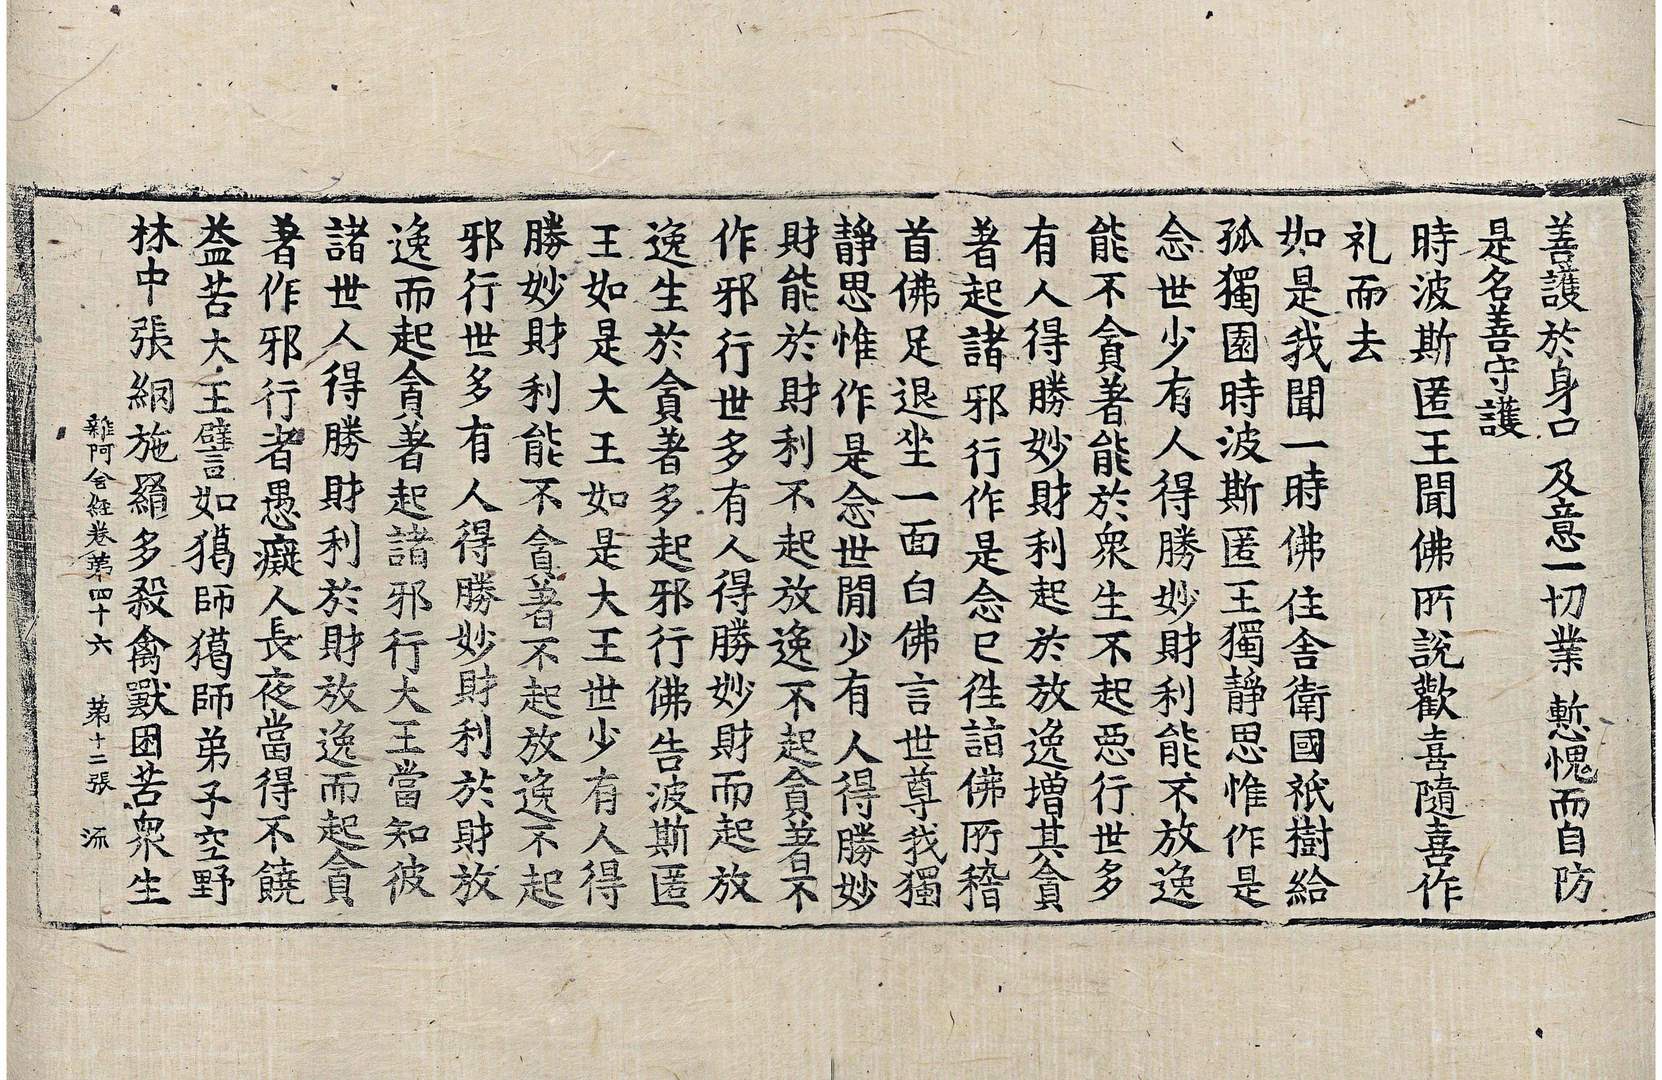 善護於身口 及意一切業 慙愧而自防
是名善守護
時波斯匿王聞佛所說歡喜隨喜作
礼而去
如是我聞一時佛住舍衛國祇樹給
孤獨園時波斯匿王獨靜思惟作是
念世少有人得勝妙財利能不放逸
能不貪著能於衆生不起惡行世多
有人得勝妙財利起於放逸增其貪
著起諸邪行作是念已徃詣佛所稽
首佛足退坐一面白佛言世尊我獨
靜思惟作是念世間少有人得勝妙
財能於財利不起放逸不起貪著不
作邪行世多有人得勝妙財而起放
逸生於貪著多起邪行佛告波斯匿
王如是大王如是大王世少有人得
勝妙財利能不貪著不起放逸不起
邪行世多有人得勝妙財利於財放
逸而起貪著起諸邪行大王當知彼
諸世人得勝財利於財放逸而起貪
著作邪行者愚癡人長夜當得不饒
益苦大王譬如獦師獦師弟子空野
林中張網施羂多殺禽獸困苦衆生
雜阿含経卷第四十六 第十二張 流